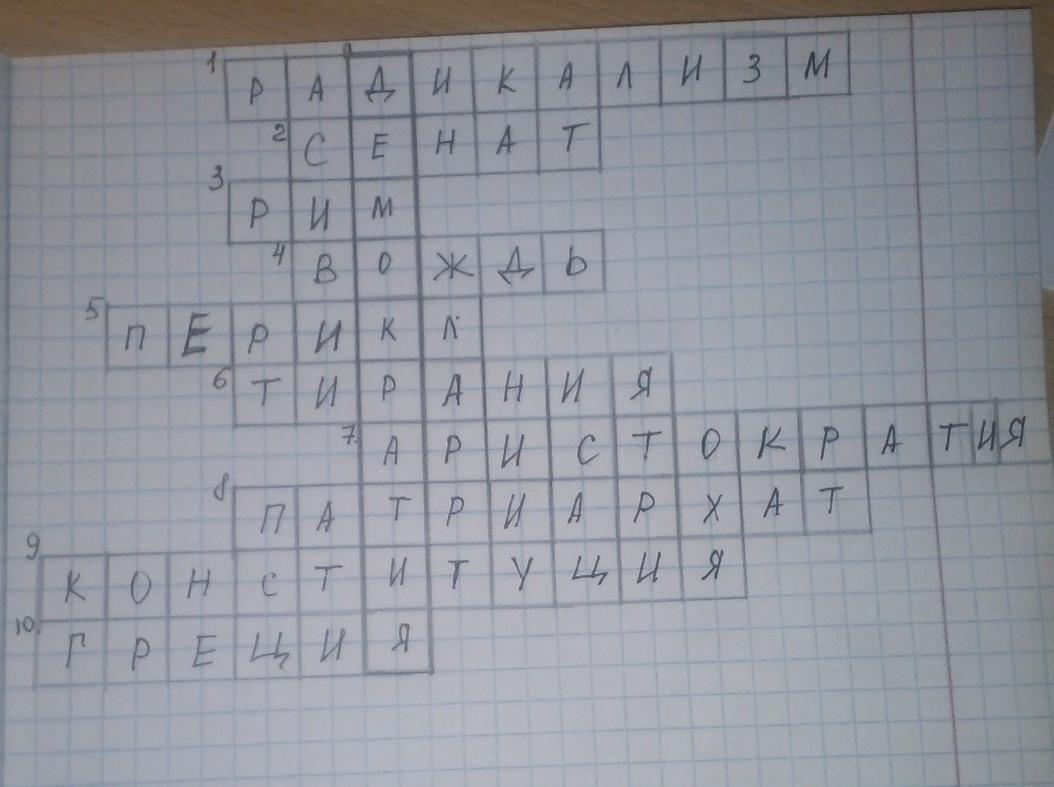 1 РАДИКАЛИЗМ
2 СЕНАТ
3 РИМ
4 ВОЖДЬ
5 ПЕРИКЛ
6 ТИРАНИЯ
7. АРИСТОКРАТИЯ
8 ПАТРИАРХАТ
9 КОНСТИТУЦИЯ
10 ГРЕЦИЯ